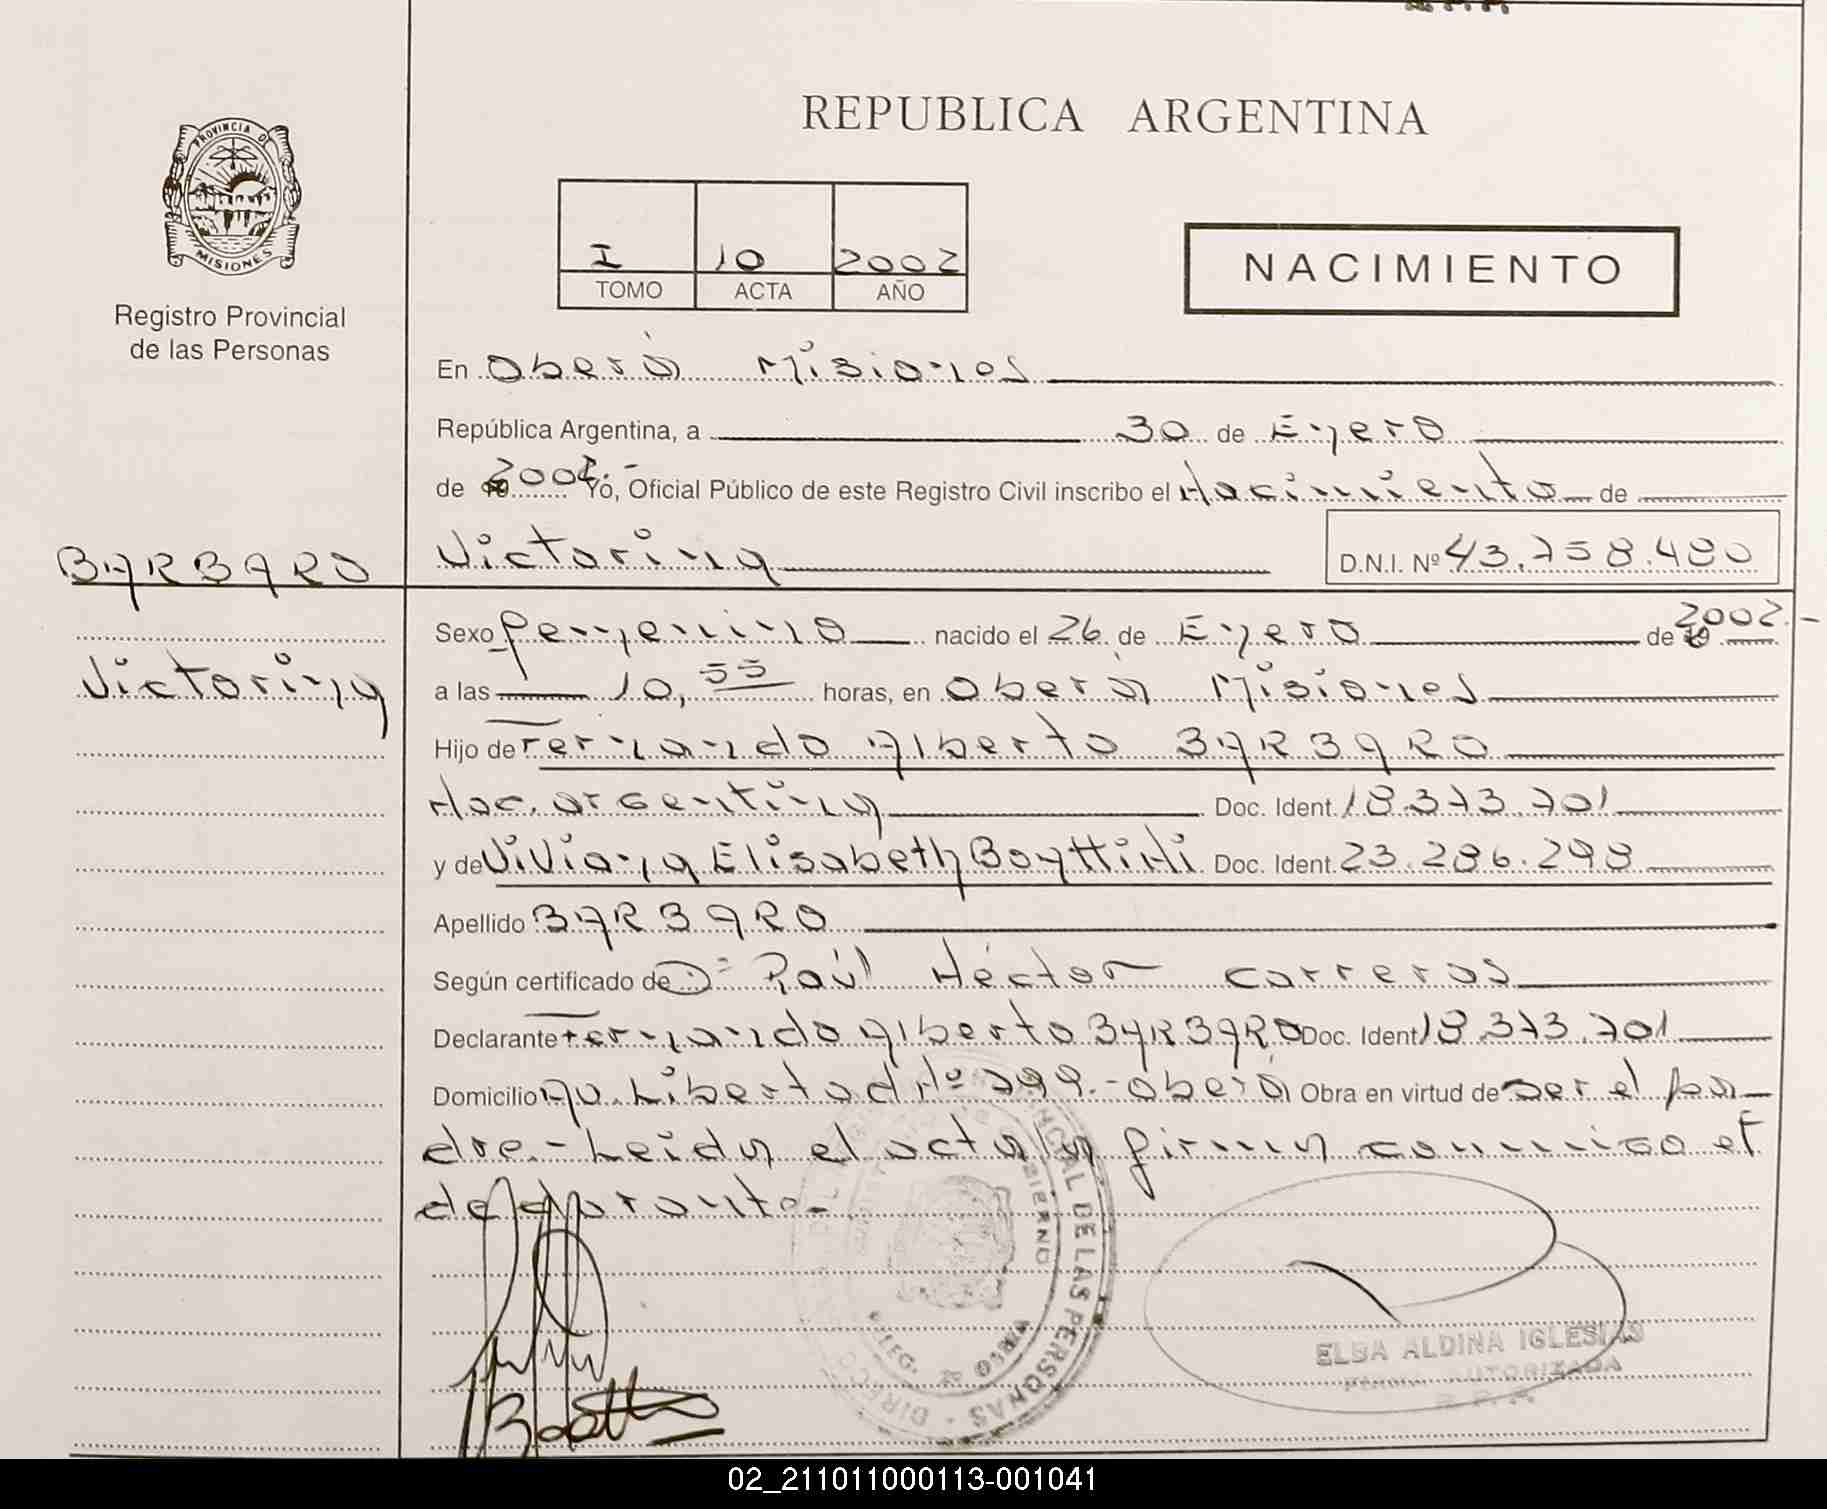 REPUBLICA ARGENTINA
PROVINCIA DE
MISIONES
Registro Provincial
de las Personas
I 10 2002
TOMO ACTA AÑO
NACIMIENTO
En Oberá Misiones
República Argentina, a 30 de Enero
de 2002.- Yó, Oficial Público de este Registro Civil inscribo el Nacimiento de
BARBARO Victorina D.N.I. Nº 43.758.480
Sexo Femenino nacido el 26 de Enero de 2002.-
Victorina
a las 10,55 horas, en Oberá Misiones
Hijo de Fernando Alberto BARBARO
Nac. argentina Doc. Ident. 18.373.701
y de Viviana Elisabeth Doc. Ident. 23.286.298
Apellido BARBARO
Según certificado de D= Raúl Héctor Carreras
Declarante Fernando Alberto BARBARO Doc. Ident 18.373.701
Domicilio Av. Libertad Nº 299.- Oberá Obra en virtud de ser el pa-
dre.- Leída el acta la firma conmigo el
declarante.-
DE LAS PERSONAS
ELBA ALDINA IGLESIAS
AUTORIZADA
02_211011000113-001041